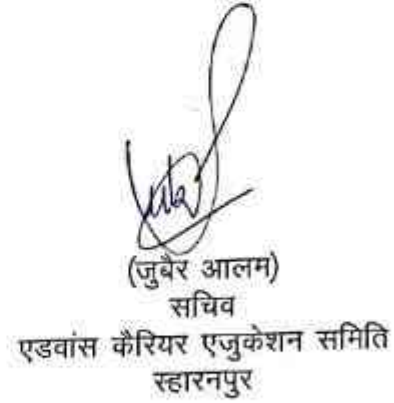 (जुबैर आलम)
सचिव
एडवांस कैरियर एजुकेशन समिति
स्हारनपुर